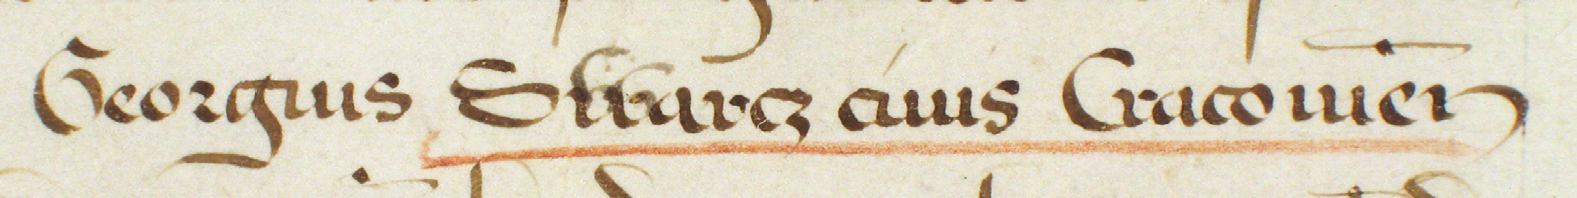 Georgius Swarcz ciuis Cracouien̄